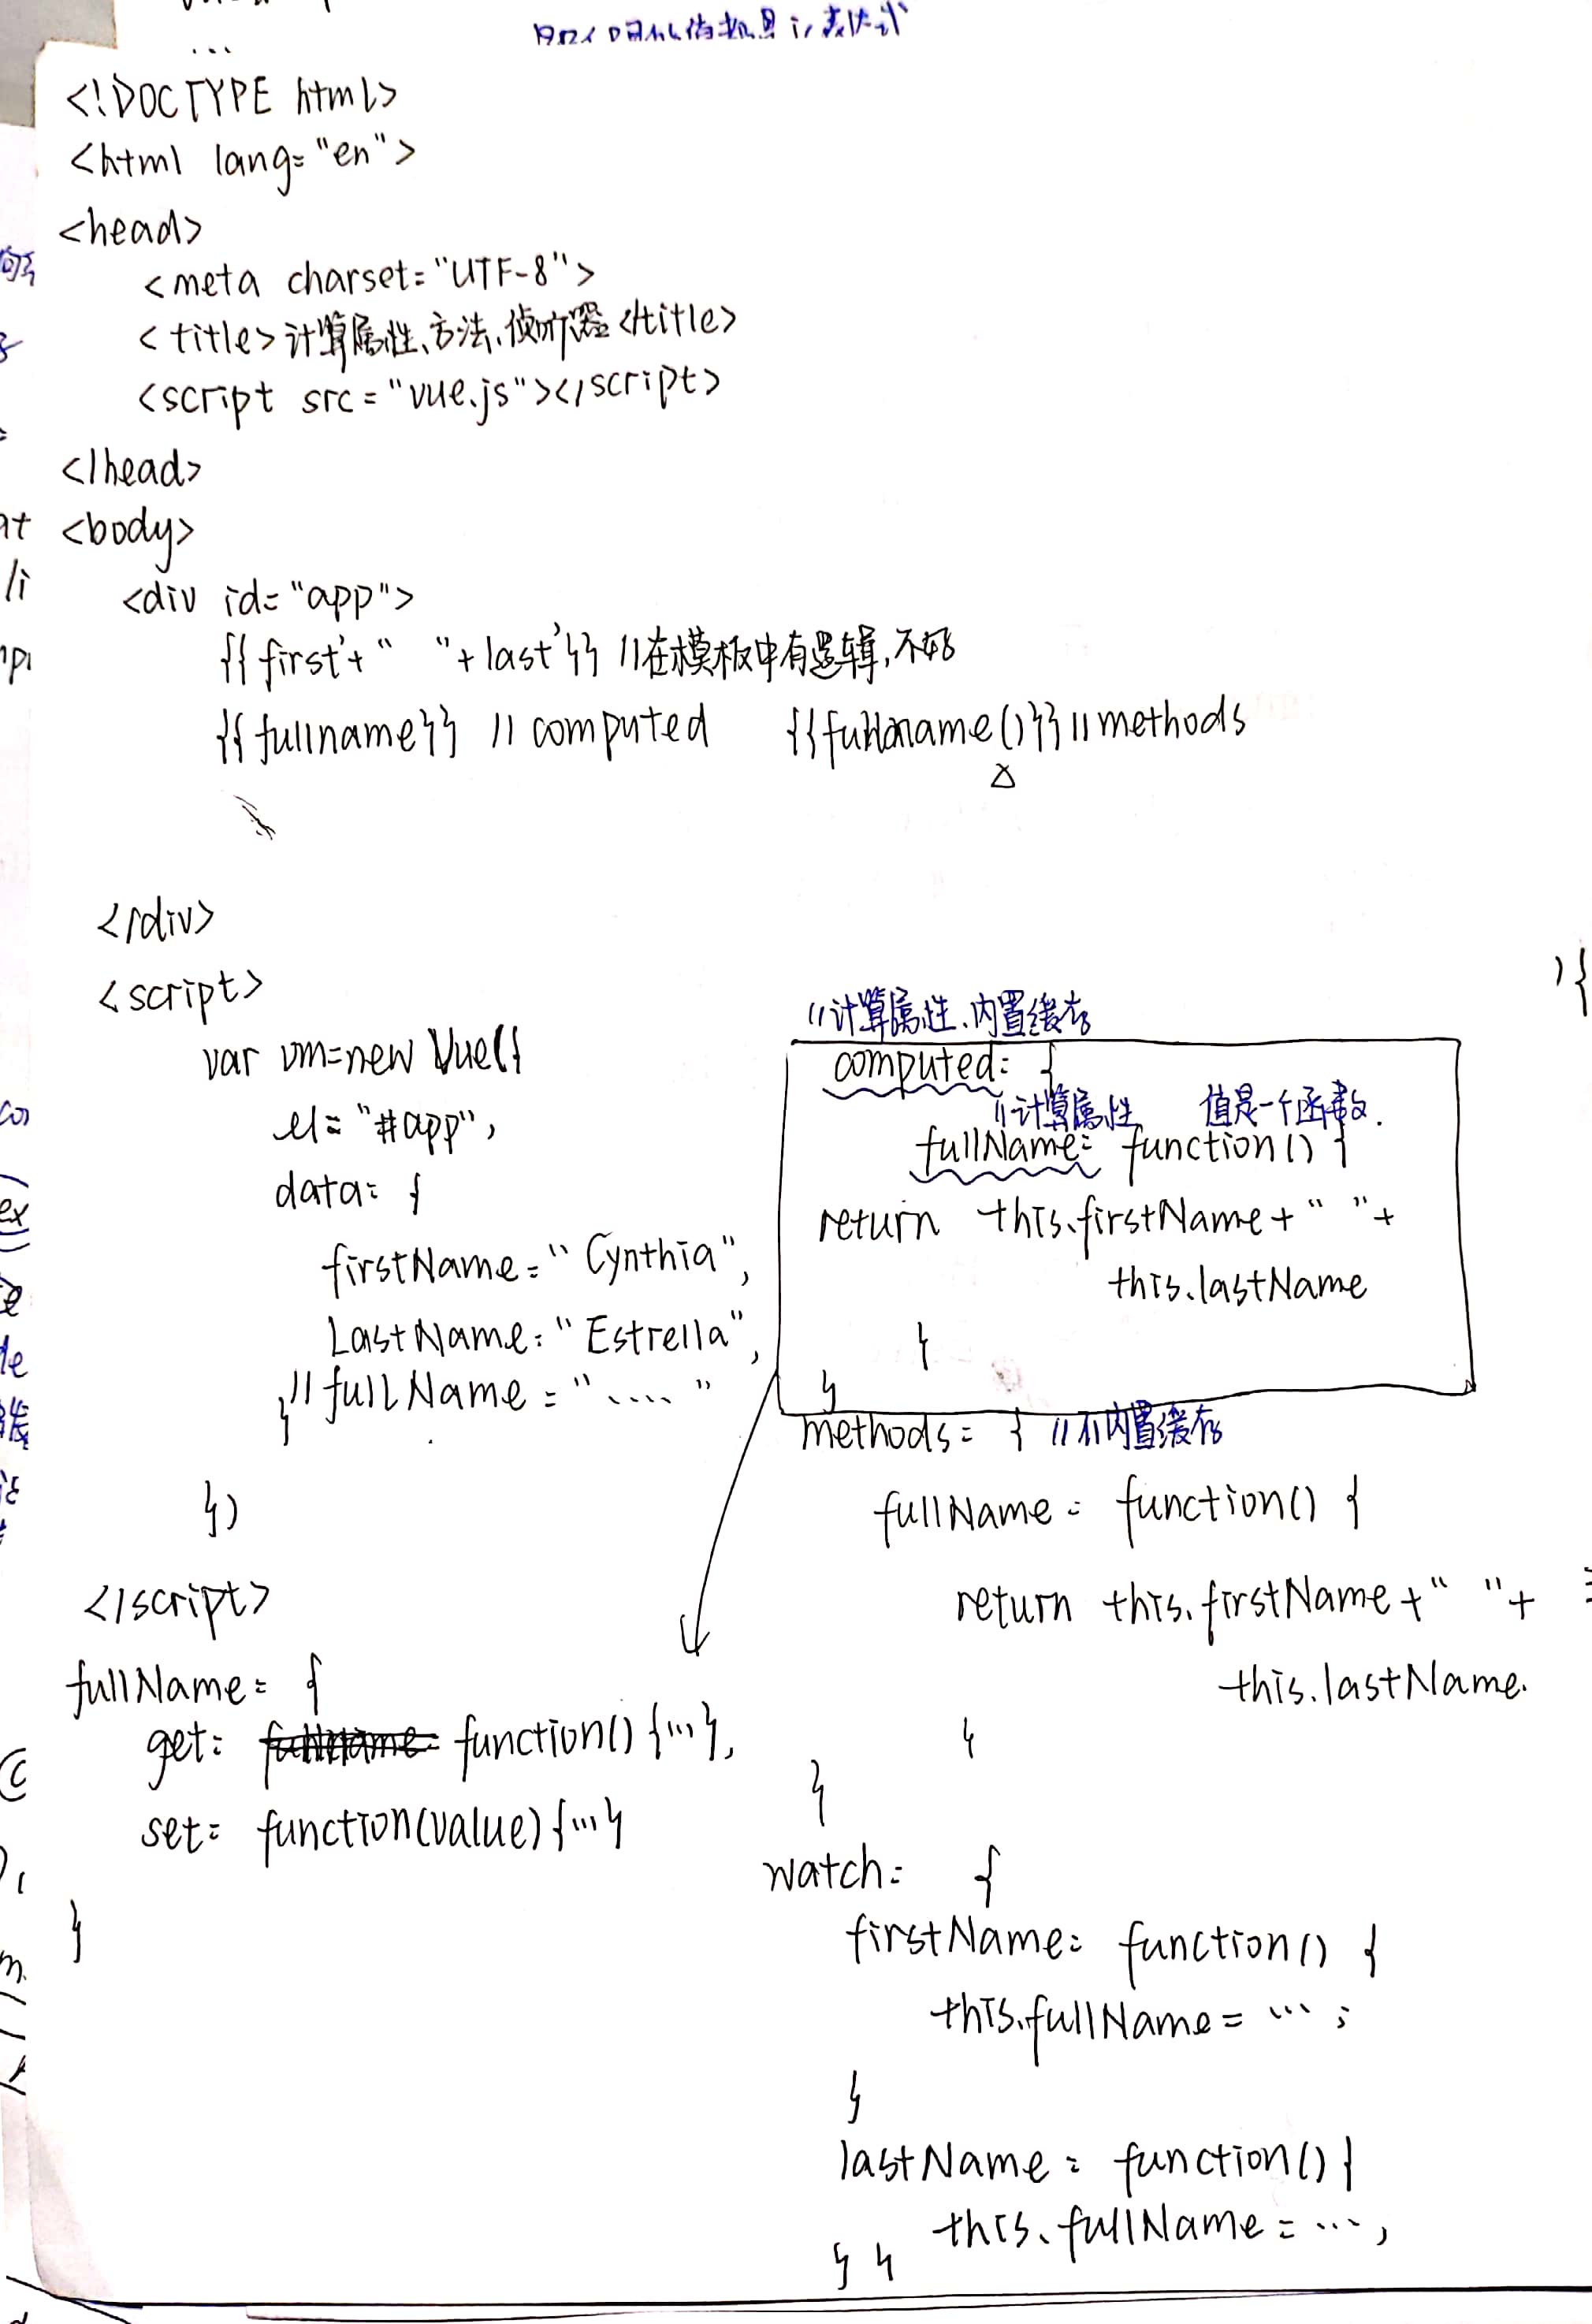 ...
<!DOCTYPE html>
<html lang="en">
<head>
<meta charset="UTF-8">
<title>计算属性、方法、侦听器</title>
<script src="vue.js"></script>
</head>
<body>
<div id="app">
{{first'+" "+last'}} //在模板中有逻辑,不好
{{fullname}} //computed {{fullname()}}//methods
</div>
<script>
var vm=new Vue({
el: "#app",
data: {
firstName: "Cynthia",
LastName: "Estrella",
//fullName = "...."
}
})
</script>
//计算属性、内置缓存
computed: {
//计算属性 值是一个函数.
fullName: function() {
return this.firstName+" "+
this.lastName
}
}
methods: { //不内置缓存
fullName: function() {
return this.firstName+" "+
this.lastName.
}
}
watch: {
firstName: function() {
this.fullName= ...;
}
lastName: function(){
this.fullName=...,
} }
fullName: {
get: function(){...},
set: function(value){...}
}